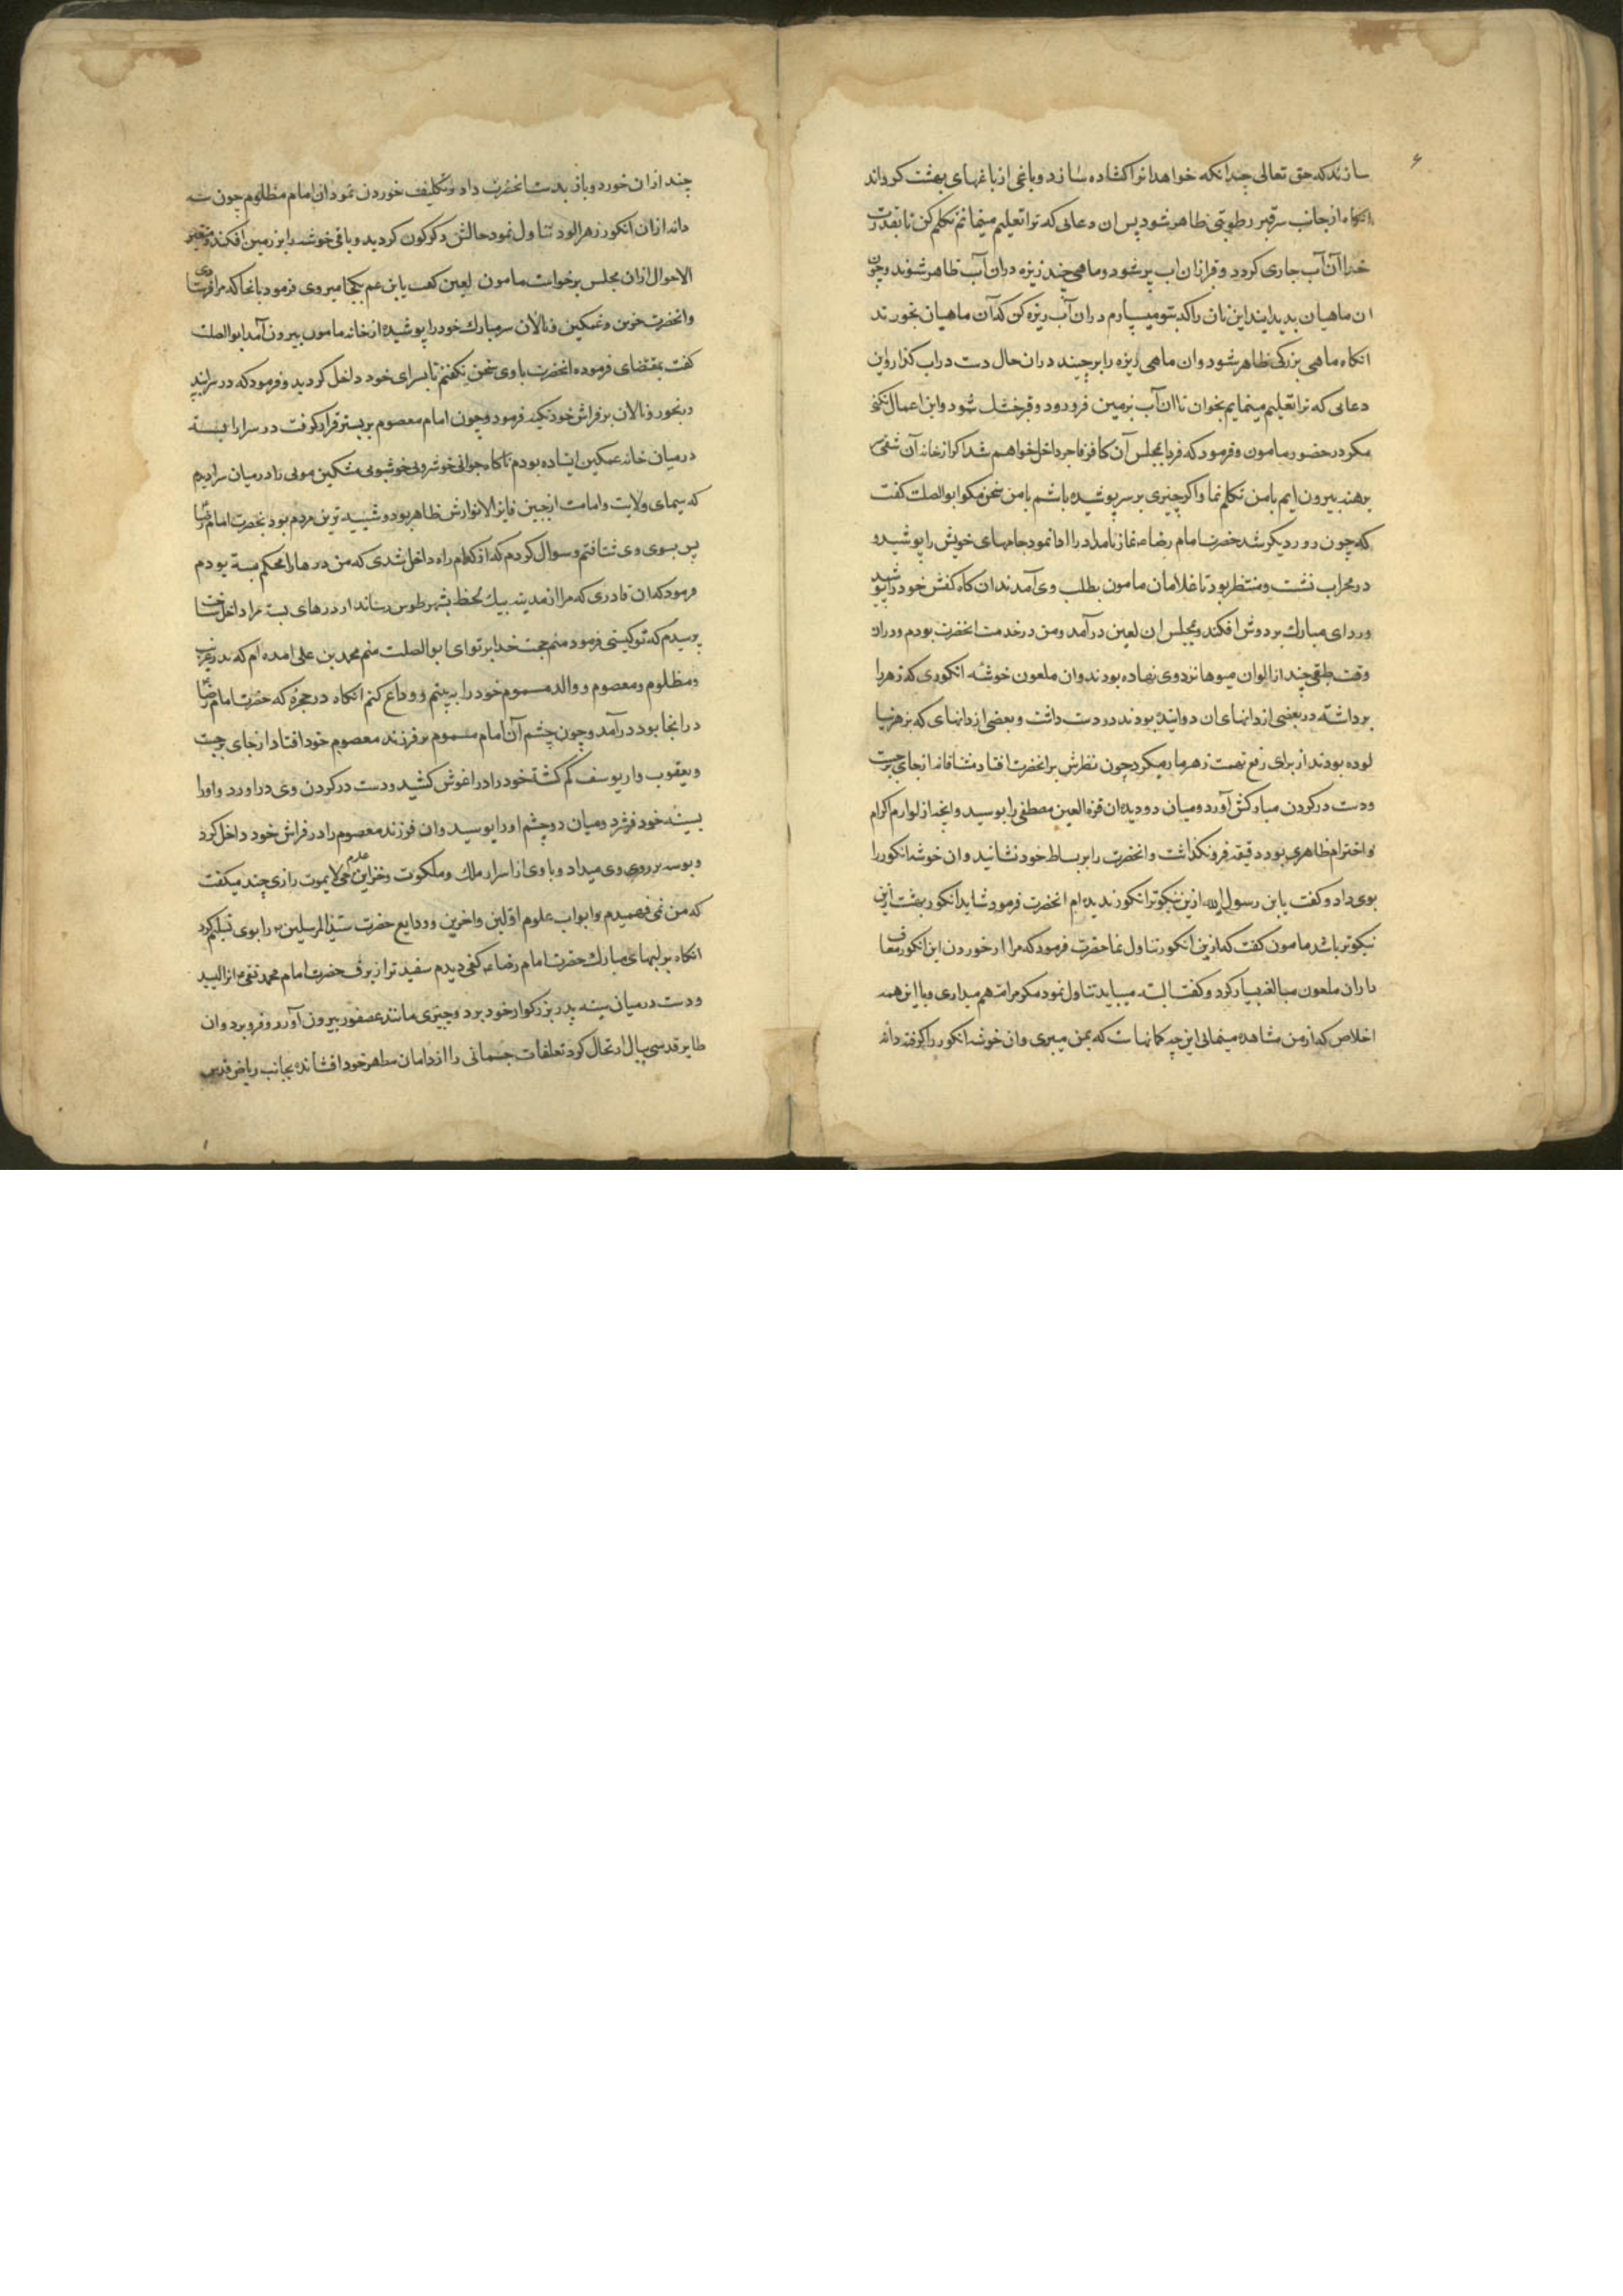 سازند که حق تعالی چندانکه خواهد انرا کشاده سازد و باغی از باغهای بهشت کرداند
انکاه از جانب سر قبر رطوبتی ظاهر شود پس ان دعائی که ترا تعلیم مینمانم تکلم کن تا بقدرت
خدا آن آب جاری کردد و قبر ازان اب پر شود و ماهی چند ریزه دران آب ظاهر شوند و چون
ان ماهیان بدید ایند این نان را که بتو میسپارم دران آب ریزه کن که آن ماهیان بخورند
انکاه ماهی بزرکی ظاهر شود وان ماهی ریزه را برچیند دران حال دست دراب کذار واین
دعائی که ترا تعلیم مینمایم بخوان تا ان آب بزمین فرو رود و قبر خشک شود واین اعمال نکنی
مکر در حضور مامون و فرمود که فردا بمجلس آن کافر فاجر داخل خواهم شد اکر از خانه آن شقی سر
برهنه بیرون ایم با من تکلم نما واکر چیزی بر سر پوشیده باشم با من سخن مکو ابوالصلت کفت
که چون روز دیکر شد حضرت امام رضاء نماز بامداد را ادا نمود جامهای خویش را پوشید و
در محراب نشست و منتظر بود تا غلامان مامون بطلب وی آمدند ان کاه کفش خود را پوشید
وردای مبارک بر دوش افکند و بمجلس ان لعین درآمد ومن در خدمت انحضرت بودم ودران
وقت طبقی چند از الوان میوها نزد وی نهاده بودند وان ملعون خوشه انکوری که زهر را
برداشته در بعضی از دانهای ان دوانیده بودند در دست داشت و بعضی از دانهای که بزهر نیا
لوده بودند از برای رفع تهمت زهر مار میکرد چون نظرش برانحضرت افتاد مشتاقانه از جای برجست
ودست در کردن مبارکش آورد و میان دو دیده ان قرة العین مصطفی را بوسید وانچه از لوازم اکرام
واحترام ظاهری بود دقیقه فرونکذاشت وانحضرت را بر بساط خود نشانید وان خوشه انکور را
بوی داد و کفت یا بن رسول الله ازین نیکوتر انکور ندیده ام انحضرت فرمود شاید انکور بهشت ازین
نیکوتر باشد مامون کفت که ازین انکور تناول نما حضرت فرمود که مرا از خوردن این انکور معاف
دار ان ملعون مبالغه بسیار کرد و کفت البته میباید تناول نمود مکر مرا متهم میداری و با این همه
اخلاص که از من مشاهده مینمائی این چه کمانهاست که بمن میبری وان خوشه انکور را کرفته دانه
چند ازان خورد و باز بدست انحضرت داد و تکلیف خوردن نمود ان امام مظلوم چون سه
دانه ازان انکور زهرالود تناول نمود حالش دکرکون کردید و باقی خوشه را بر زمین افکند و متغیر
الاحوال ازان مجلس برخواست مامون لعین کفت یا بن عم بکجا میروی فرمود بانجا که مرا فرستادی
وانحضرت حزین وغمکین ونالان سر مبارک خود را پوشیده از خانه مامون بیرون آمد ابوالصلت
کفت بمقتضای فرموده انحضرت با وی سخن نکفتم تا بسرای خود داخل کردید و فرمود که در سرا ببند
ورنجور ونالان بر فراش خود تکیه فرمود وچون امام معصوم بر بستر قرار کرفت در سرا را بسته
درمیان خانه غمکین ایستاده بودم ناکاه جوانی خوشروئی خوشبوئی مشکین موئی را درمیان سرا دیدم
که سیمای ولایت وامامت از جبین فایز الانوارش ظاهر بود و شبیه ترین مردم بود بحضرت امام رضا
پس بسوی وی شتافتم و سوال کردم که از کدام راه داخل شدی که من درها را محکم بسته بودم
فرمود که ان قادری که مرا از مدینه بیک لحظه بشهر طوس رساند از درهای بسته مرا داخل ساخت
پرسیدم که تو کیستی فرمود منم حجت خدا بر تو ای ابوالصلت منم محمد بن علی امده ام که پدر غریب
ومظلوم ومعصوم و والد مسموم خود را به بینم و وداع کنم انکاه در حجره که حضرت امام رضا
در انجا بود درآمد وچون چشم آن امام مسموم بر فرزند معصوم خود افتاد از جای برجست
ویعقوب وار یوسف کم کشته خود را در اغوش کشید ودست در کردن وی دراورد واورا
بسینه خود فشرد ومیان دو چشم اورا بوسید وان فرزند معصوم را در فراش خود داخل کرد
وبوسه بر روی وی میداد و با وی از اسرار ملک وملکوت وخزاین علوم حی لایموت رازی چند میکفت
که من نمی فهمیدم و ابواب علوم اولین واخرین و ودایع حضرت سید المرسلین را بوی تسلیم کرد
انکاه بر لبهای مبارک حضرت امام رضاء کفی دیدم سفیدتر از برف حضرت امام محمد تقی انرا لیسید
ودست درمیان سینه پدر بزرکوار خود برد وچیزی مانند عصفور بیرون آورد و فرو برد وان
طایر قدسی ببال ارتحال کرد تعلقات جسمانی را از دامان مطهر خود افشانده بجانب ریاض قدس